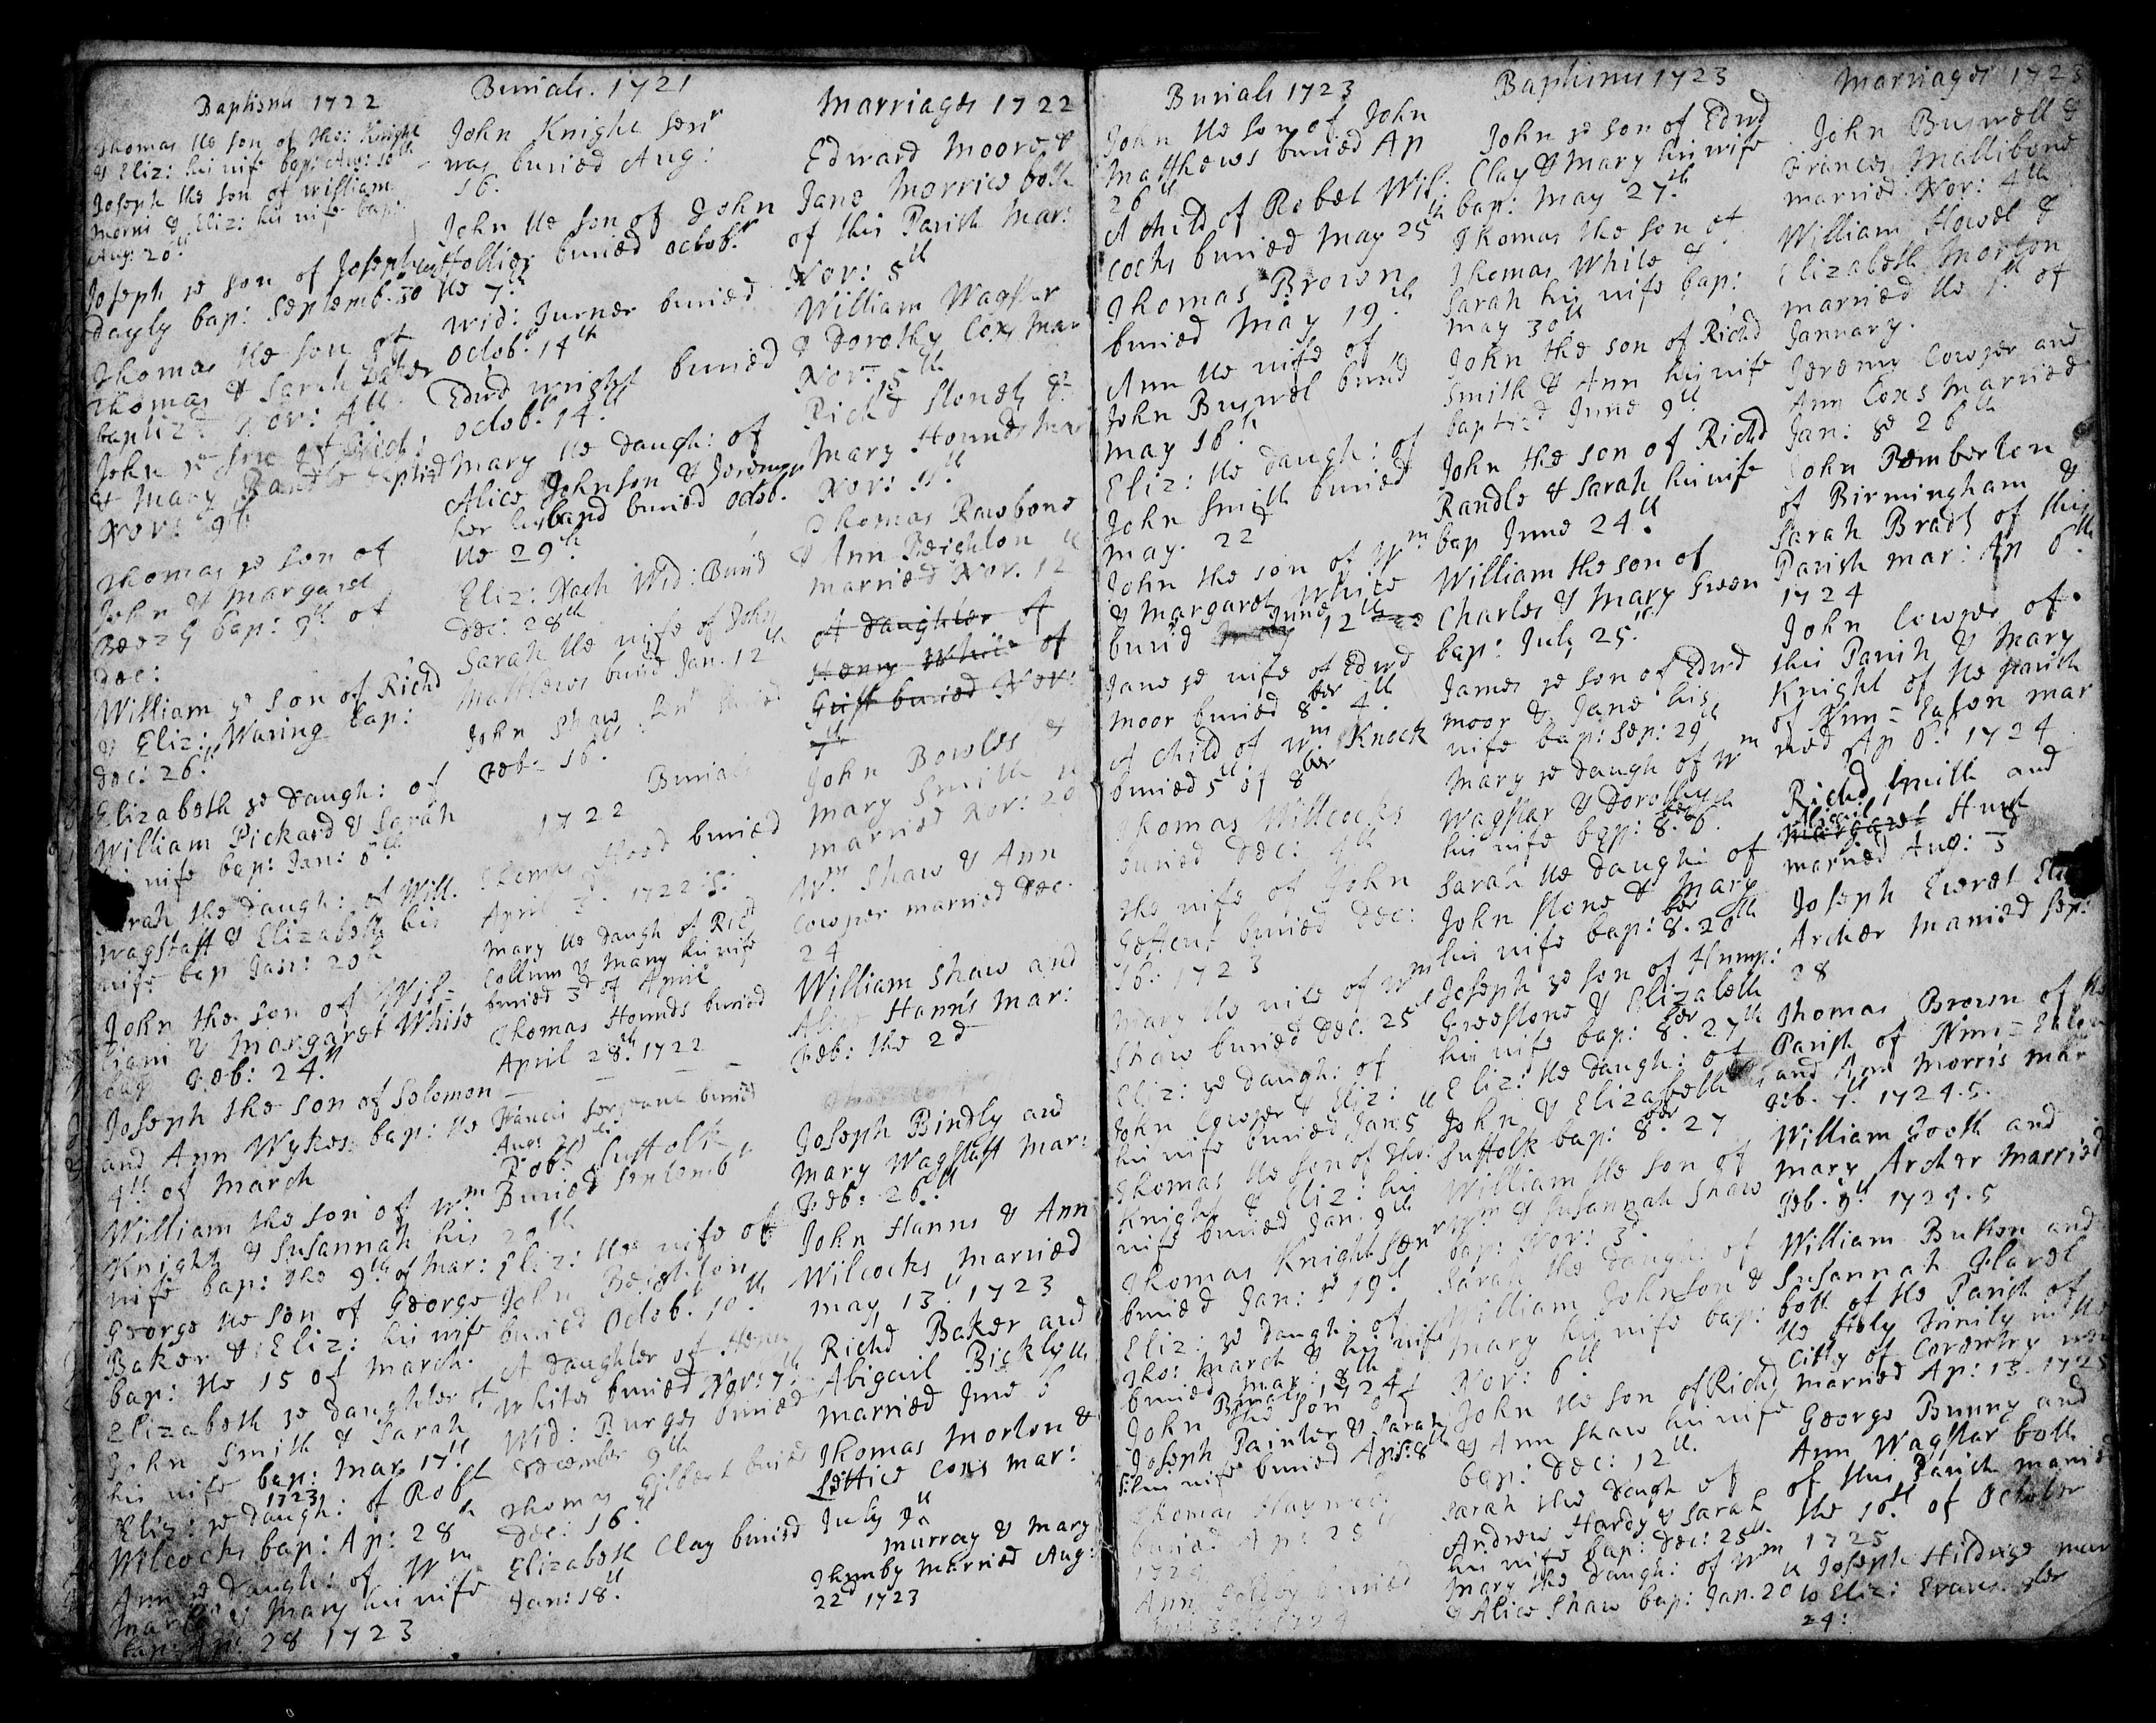 Baptisms 1722
Thomas the son of Tho: Knight
& Eliz: his wife bap: Au: 10th
Joseph the son of william
Morris & Eliz: his wife bap:
Aug: 20th
Joseph ye son of Joseph
Dayly bap: Septemb. 30
Thomas the son of
Thomas & Sarah Baker
baptizd Nov: 4th
John ye son of Rich:
& Mary Randle baptizd
Nov: 9th
Thomas ye son of
John & Margaret
bap: 9th of
Dec:
William ye son of Richd
& Eliz: Waring bap:
Dec: 26th
Elizabeth ye Daugh: of
William Pickard & Sarah
wife bap: Jan: 6th
the Daugh: of Will.
Wagstaff & Elizabeth his
wife bap Jan: 20th
John the son of Wil=
liam & Margaret White
bap Feb: 24th
Joseph the son of Solomon
and Ann Wykes bap: the
4th of March
William the son of Wm
Knight & Susannah his
wife bap: the 9th of Mar:
George the son of George
Baker & Eliz: his wife
bap: the 15 of march.
Elizabeth ye Daughter of
John Smith & Sarah
his wife bap: Mar 17th
1723
Eliz: ye Daugh: of Robt
Wilcocks bap: Ap: 28th
Ann ye Daugh: of Wm
& Mary his wife
bap: Ap: 28 1723
Burials. 1721
John Knight senr
was buried Aug:
16.
John the son of John
Hollier buried octobr
the 7th
Wid: Turner buried
Octobr 14th
Edwd wright buried
octobr 14th
Mary the Daugh: of
Alice Johnson & Jeremy
her husband buried octob.
the 29th
Eliz: Nash Wid: Buried
Dec: 28th
Sarah the wife of John
Matthews buried Jan. 12th
John Shaw Senr buried
Feb. 16th
Burials
1722
Thomas Hood buried
April 3d. 1722
Mary the Daugh of Richd
Collum & Mary his wife
buried 3d of April
Thomas Hounds buried
April 28th 1722
Francis Sergeant buried
Aug:
Robt Suffolk
Buried Septembr
20th
Eliz: the wife of
John Beighton
buried Octobr 10th
A Daughter of Henry
White buried Nov: 7th
Wid: Burges buried
December 9th
Thomas Gilbert buried
Dec: 16th
Elizabeth Clay buried
Jan: 18th
Marriages 1722
Edward Moore &
Jane Morris both
of this Parish Mar:
Nov: 5th
William Wagstar
& Dorothy Cox Mar
Nov: 5th
Richd Stonely &
Mary Hounds Mar
Nov: 11th
Thomas Rawbone
& Ann Beighton
married Nov. 12th
A Daughter of
Henry White of
Griff buried Nov:
7th
John Bowles &
Mary Smith
married Nov: 20
Wm Shaw & Ann
Cowper married Dec.
24
William Shaw and
Alice Hanns mar:
Feb: the 2d
Joseph Bindly and
Mary Wagstaff mar:
Feb: 26th
John Hanns & Ann
Wilcocks married
may 13th 1723
Richd Baker and
Abigail Bickly
married June 5th
Thomas Morton &
Lettice Coxs mar:
July 9th
Murray & Mary
Thumby Married Aug:
22d 1723
Burials 1723
John the son of John
Matthews buried Ap
26th
A child of Robet Wil:
cocks buried May 25th
Thomas Brown
buried May 19th
Ann the wife of
John Buswel burid
May 16th
Eliz: the daugh: of
John Smith buried
May. 22
John the son of Wm
& Margaret White
burid June 12th
Jane ye wife of Edwd
Moor buried 8ber 4th
A Child of Wm Knock
buried 5th of 8ber
Thomas Willcocks
buried Dec: 4th
the wife of John
buried Dec:
16: 1723
Mary the wife of Wm
Shaw buried Dec. 25th
Eliz: ye Daugh: of
John Cowper & Eliz:
his wife buried Jan 5th
Thomas the son of Tho:
Knight & Eliz: his
wife buried Jan. 9th
Thomas Knight senr
buried Jan: ye 19th
Eliz: ye Daugh: of
Tho: March & his wife
buried Mar: 8th
Burials 1724
John the son of
Joseph Painter & Sarah
his wife buried Ap: 8th
Thomas
buried Ap: 25th
1724
Ann buried
1724
Baptisms 1723
John ye son of Edwd
Clay & Mary his wife
bap: May 27th
Thomas the son of
Thomas White &
Sarah his wife bap:
may 30th
John the son of Richd
Smith & Ann his wife
baptizd June 9th
John the son of Richd
Randle & Sarah his wife
bap June 24th
William the son of
Charles & Mary Green
bap: July 25th
James ye son of Edwd
Moor & Jane his
wife bap: Sep: 29th
Mary ye Daugh of Wm
Wagstar & Dorothy
his wife bap: 8ber 6th
Sarah the Daugh: of
John Stone & Mary
his wife bap: 8ber 20th
Joseph ye son of Hump:
Greestone & Elizabeth
his wife bap: 8ber 27th
Eliz: the Daugh: of
John & Elizabeth
Suffolk bap: 8ber 27
William the son of
Wm & Susannah Shaw
bap: Nov: 3d
Sarah the Daugh: of
William Johnson &
Mary his wife bap:
Nov: 6th
John the son of Richd
& Ann Shaw his wife
bap: Dec: 12th
Sarah the Daugh of
Andrew Hardy & Sarah
his wife bap: Dec: 25th
Mary the Daugh: of Wm
& Alice Shaw bap: Jan. 20th
Marriages 1723
John Buswell &
Frances Mallibone
married Nov: 4th
William Howel &
Elizabeth Morton
married the 1st of
January.
Jeremy Cowper and
Ann Coxs Married
Jan: ye 26th
John Pemberton
of Birmingham &
Sarah Brads of this
Parish mar: Ap 6th
1724
John Cowper of
this Parish & Mary
Knight of the parish
of Nun=Eaton mar
ried Ap 6th: 1724
Richd Smith and
Abigail
Margaret Hunt
married Aug: 3
Joseph Everet
Archer Married Sep:
28
Thomas Brown of the
Parish of Nun=Eaton
and Ann Morris mar
Feb. 7th 1724.5.
William Gooth and
Mary Archer Married
Feb. 9th 1724.5
William Button and
Susannah Flavel
both of the Parish of
the Holy Trinity in the
Citty of Coventry were
married Ap: 13. 1725
George Bunny and
Ann Wagstar both
of this Parish married
the 10th of October
1725
Joseph Hildrige mar
to Eliz: Evans
24: